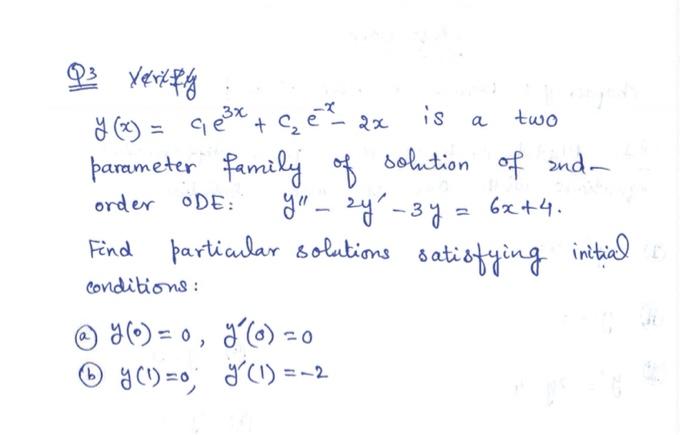 Q3 Verify
y(x) = c₁e³ˣ + c₂e⁻ˣ - 2x is a two
parameter family of solution of 2nd-
order ODE: y'' - 2y' - 3y = 6x+4.
Find particular solutions satisfying initial
conditions:
(a) y(0) = 0, y'(0) = 0
(b) y(1) = 0; y'(1) = -2